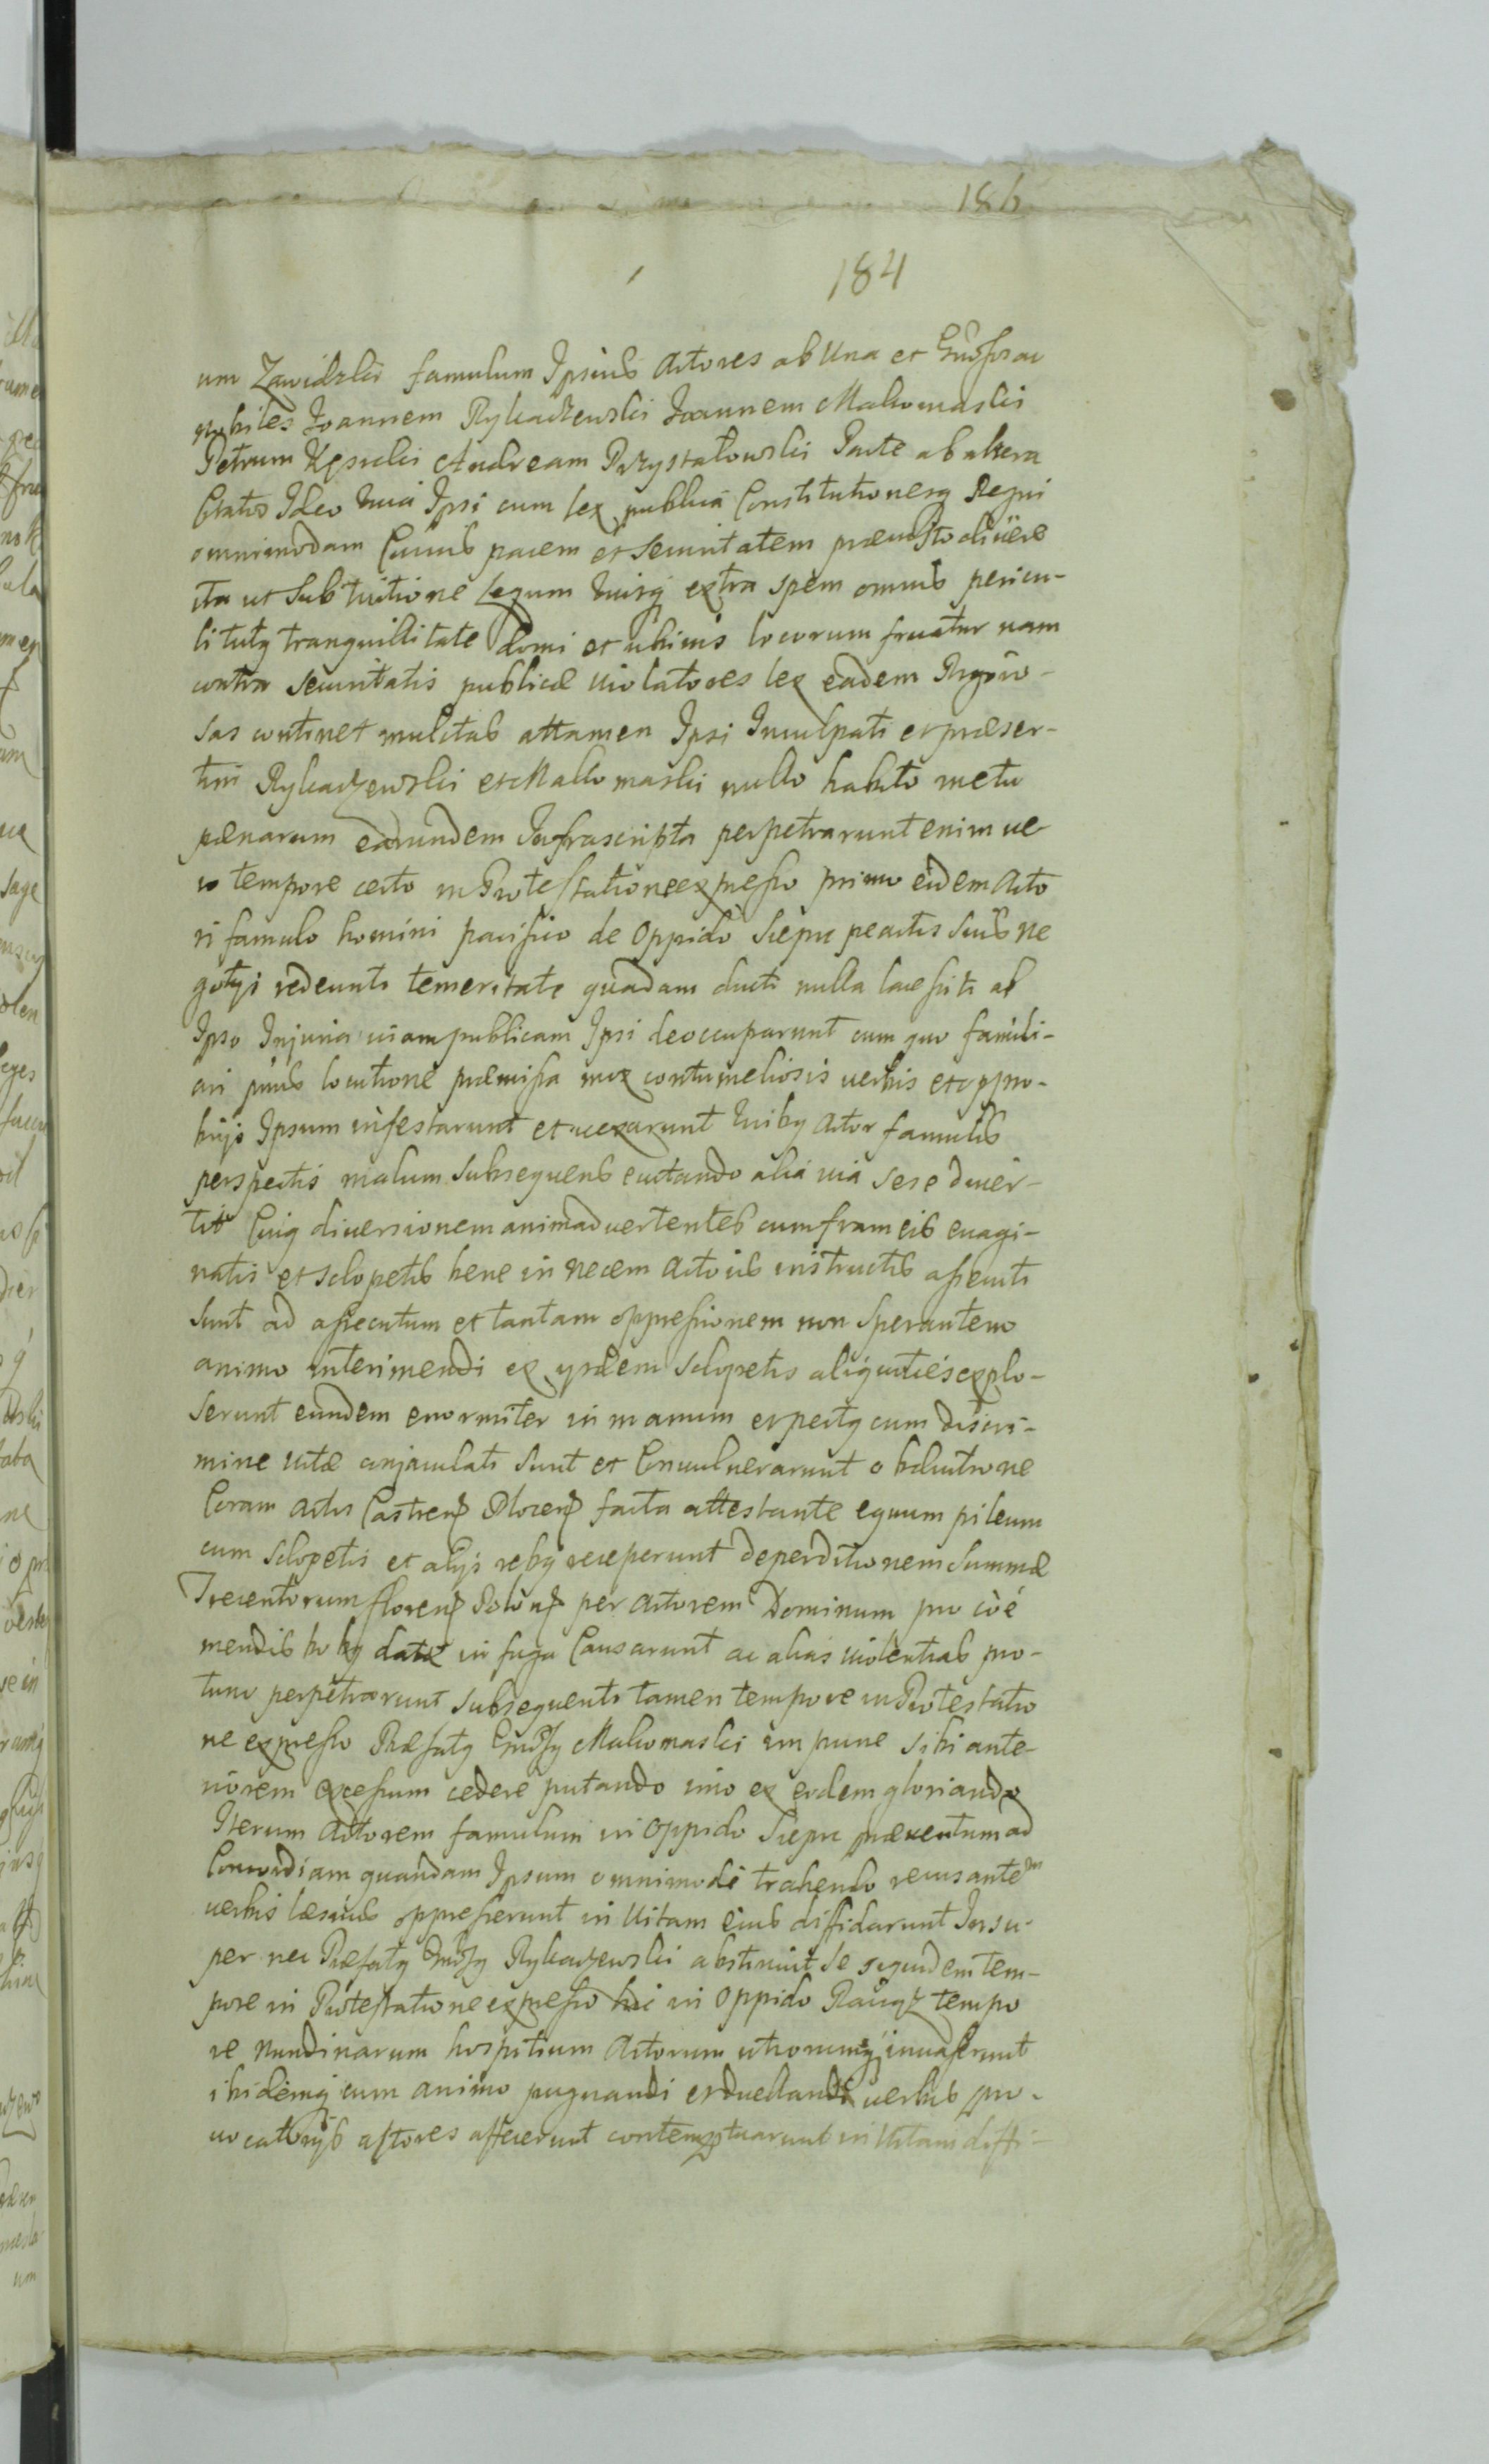 186
184
um Zawidzki famulum Ipsius Actores ab Una et Gnosos ac
nobiles Joannem Rykaczewski Joannem Makomaski
Petrum Kęsicki Andream Przystałowski Parte ab altera
Citatos Ideo quia Ipsi cum lex publica Constitutionesq Regni
omnimodam Cuius pacem et Securitatem
ita ut Sub tuitione Legum quisq extra spem omnis pericu-
li tutq tranquillitate domi et ubivis locorum fruatur nam
contra securitatis publicæ violatores lex eadem Rigoro-
sas continet mulctas attamen Ipsi Inculpati et præser-
tim Rykaczewski et Makomaski nullo habito metu
pænarum earundem Infrascripta perpetrarunt enim ve-
ro tempore certo in Protestatione expresso primo eidem Acto
ri famulo homini pacifico de Oppido Sieprc peractis Suis ne
gotys redeunti temeritate quadam ducti nulla lacessiti ab
Ipso Injuria viam publicam Ipsi deoccuparunt cum quo famili-
ari prius locutione præmissa mox contumeliosis verbis et oppro-
brijs Ipsum infestarunt et vexarunt quibq Actor famulus
perspectis malum subsequens evitando alia via sese diver-
tit Cuiq diversionem animadvertentes cum frameis evagi-
natis et sclopetis bene in necem Actoris instructis assecuti
sunt ad assecutum et tantam oppressionem non Sperantem
animo interimendi ex ysdem sclopetis aliquoties explo-
serunt eundem enormiter in manum et pectq cum discri-
mine vitæ conjaculati sunt et Convulnerarunt obductione
Coram Actis Castren Plocen facta attestante equum pileum
cum sclopetis et alys rebq receperunt deperditionem Summæ
Trecentorum floren Polon per Actorem Dominum pro coe
mendis bobq datæ in fuga Causarunt ac alias violentias pro-
tunc perpetrarunt subsequenti tamen tempore in Protestatio
ne expresso Præfatq Gnosq Makomaski impune sibi ante-
riorem excessum cedere putando imo ex eodem gloriando
Iterum Actorem famulum in Oppido Sieprc præventum ad
Concordiam quandam Ipsum omnimode trahendo recusantem
verbis læsivis oppresserunt in Vitam eius diffidarunt Insu-
per nec Præfatq Gnosq Rykaczewski abstinuit se siquidem tem-
pore in Protestatione expresso hic in Oppido Raciąz tempo
re Nundinarum hospitium Actorum utrorumq invaserunt
ibidemq cum animo pugnandi et duellandi verbis pro-
vocatorijs actores affecerunt contemptuarunt in Vitam diffi-